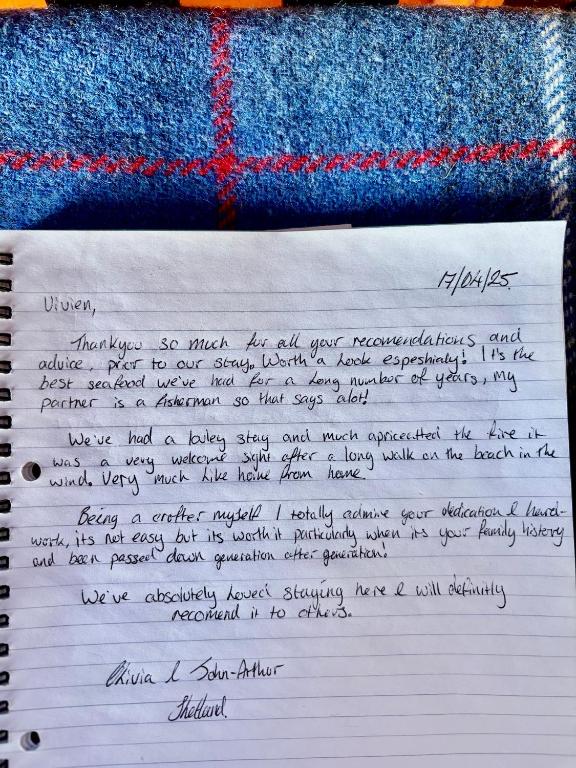 17/04/25.
Vivien,
Thankyou so much for all your recomendations and
advice, prior to our stay. Worth a Look espeshialy! It's the
best seafood we've had for a Long number of years, My
partner is a fisherman so that says alot!
We've had a loveley stay and much apriceatted the fire it
was a very welcome sight after a long walk on the beach in the
wind. Very much Like home from home.
Being a crofter myself I totally admire your dedication & hard-
work, its not easy but its worth it particularly when its your family history
and been passed down generation after generation!
We've absolutely Loved staying here & will definitly
recomend it to others.
Olivia & John-Arthur
Shetland.